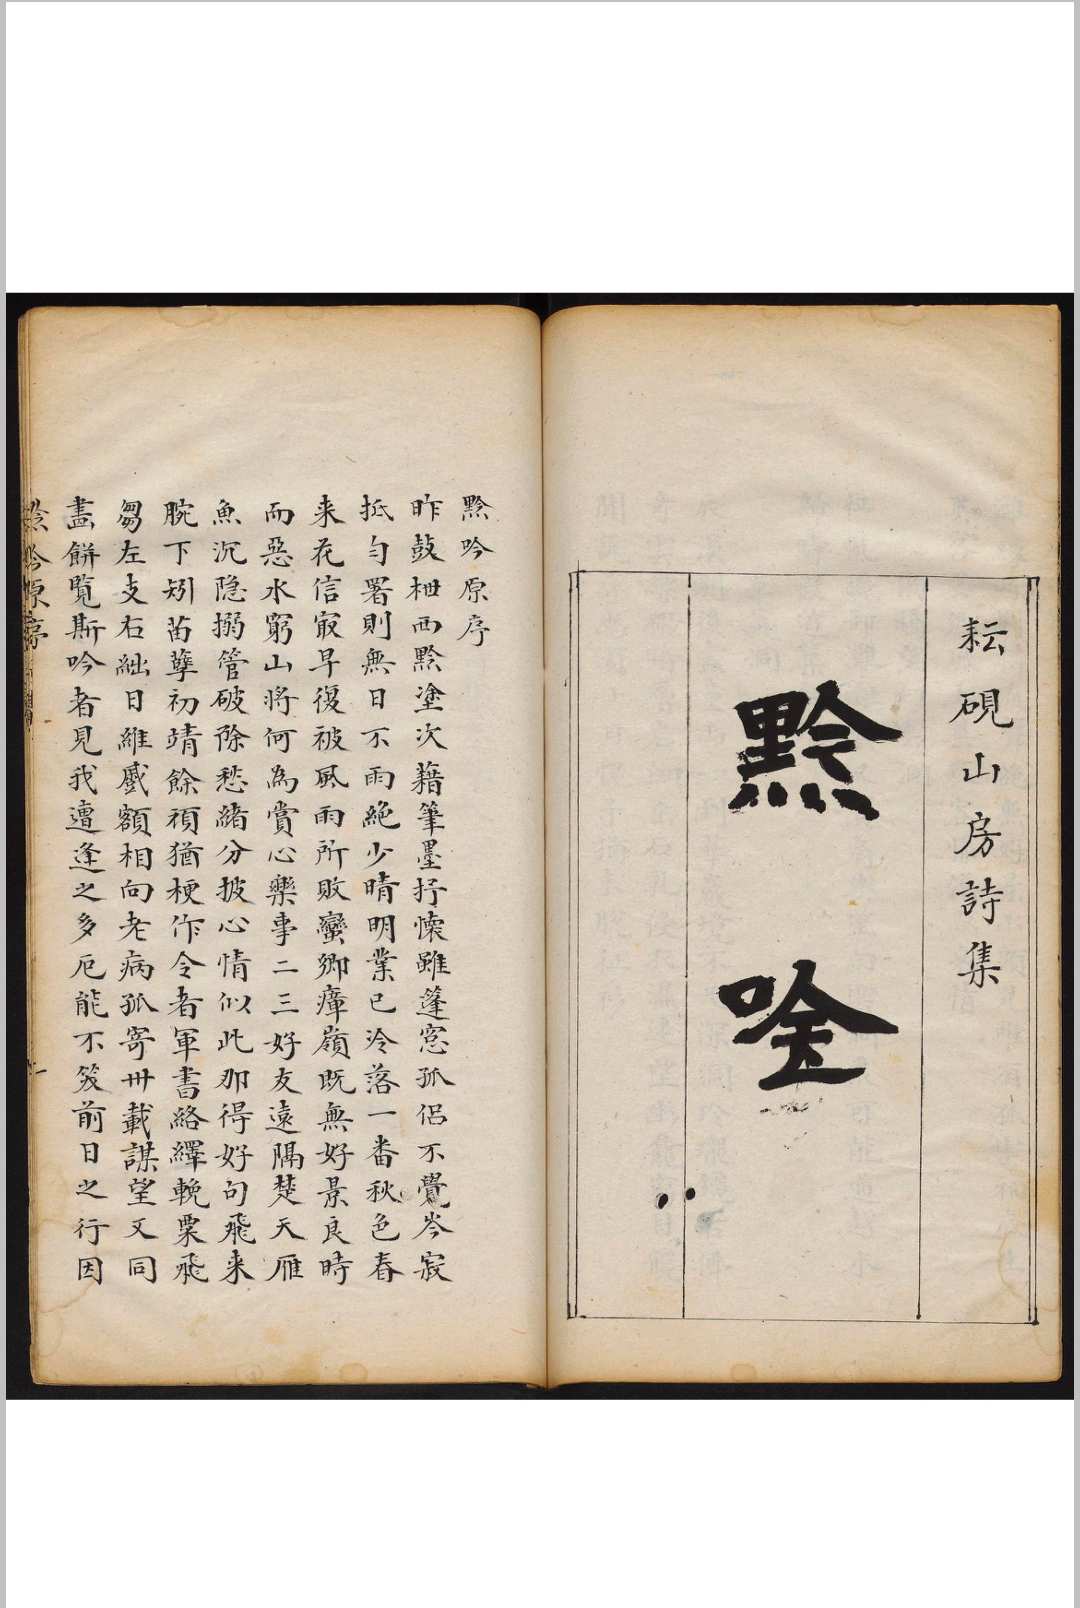 耘硯山房詩集
黔唫
黔吟原序
昨鼓枻西黔塗次藉筆墨抒懷雖蓬窓孤侶不覺岑寂
抵勻署則無日不雨絶少晴明業已冷落一番秋色春
来花信㝡早復被風雨所敗蠻鄉瘴嶺既無好景良時
而惡水窮山將何為賞心樂事二三好友遠隔楚天雁
魚沉隐搦管破除愁緒分披心情似此那得好句飛来
腕下矧苗孽初靖餘頑猶梗作令者軍書絡繹輓粟飛
芻左支右絀日維蹙額相向老病孤寄卅載謀望又同
畫餅覧斯吟者見我遭逢之多厄能不笑前日之行因
黔吟原序